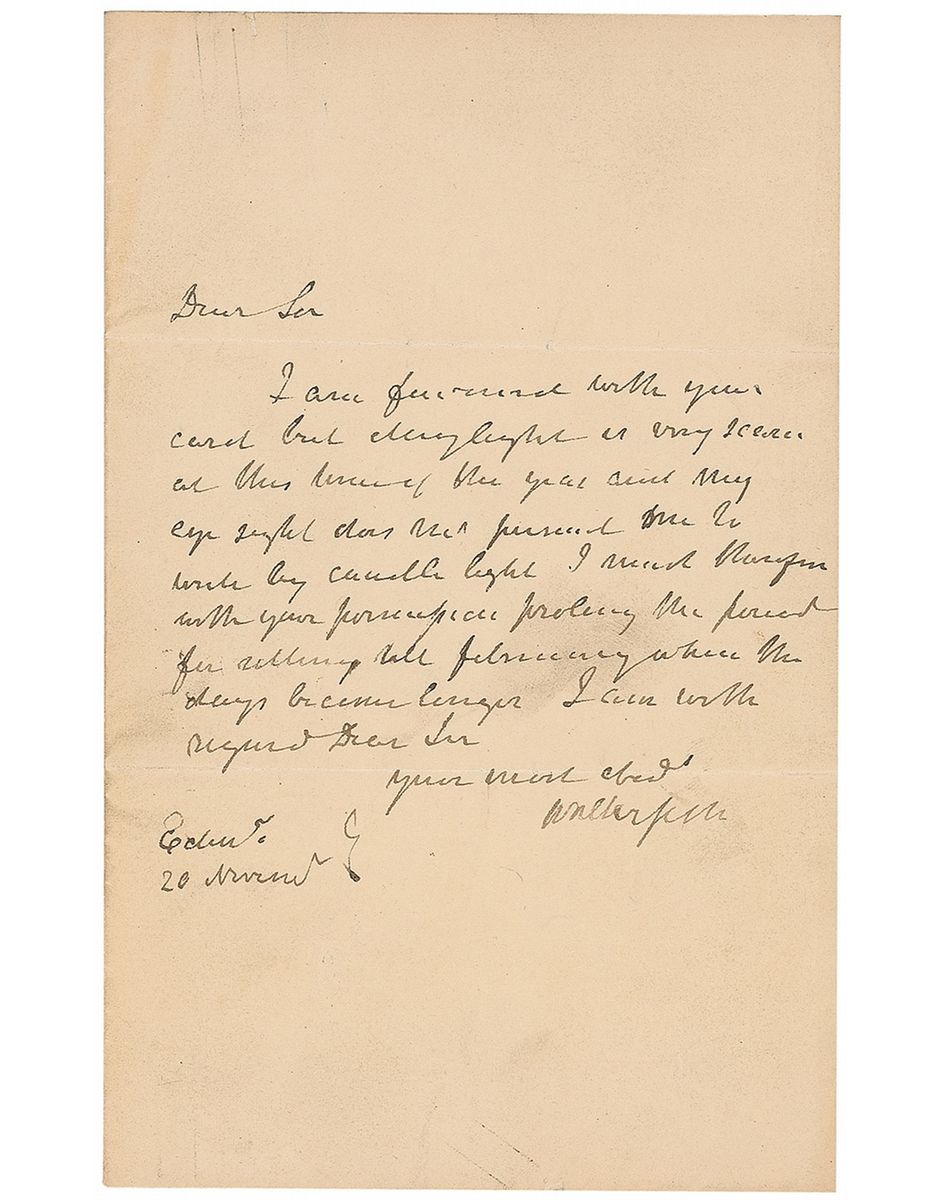 Dear Sir
I am favourd with your
card but daylight is very scarce
at this time of the year and my
eye sight does not permit me to
write by candle light I must therefore
with your permission prolong the period
for sitting till february when the
days become longer I am with
regard Dear Sir
your most obedt
Walter Scott
Edinr.
20 Novemr